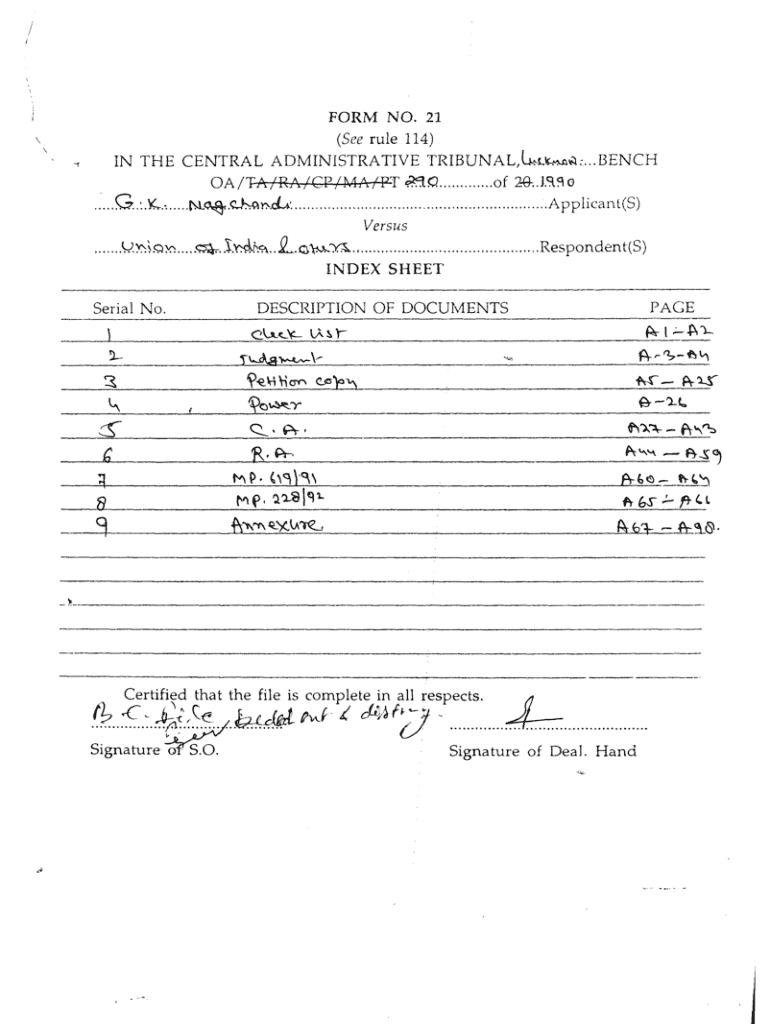 FORM NO. 21
(See rule 114)
IN THE CENTRAL ADMINISTRATIVE TRIBUNAL, Lucknow....BENCH
OA/TA/RA/CP/MA/PT 290.............of 20..1990
.....G.K......Nagchandi....................................................Applicant(S)
Versus
......Union....of India & others..........................................Respondent(S)
INDEX SHEET
Serial No. DESCRIPTION OF DOCUMENTS PAGE
1 Check List A1-A2
2 Judgment A-3-A4
3 Petition copy A5-A25
4 Power A-26
5 C.A. A27-A43
6 R.A. A44-A59
7 MP. 619/91 A60-A64
8 MP. 228/92 A65-A66
9 Annexure A67-A90.
Certified that the file is complete in all respects.
B.C. file out &
Signature of S.O. Signature of Deal. Hand